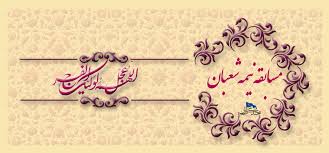 مسابقه نیمه شعبان
اللهم عجل لولیک الفرج